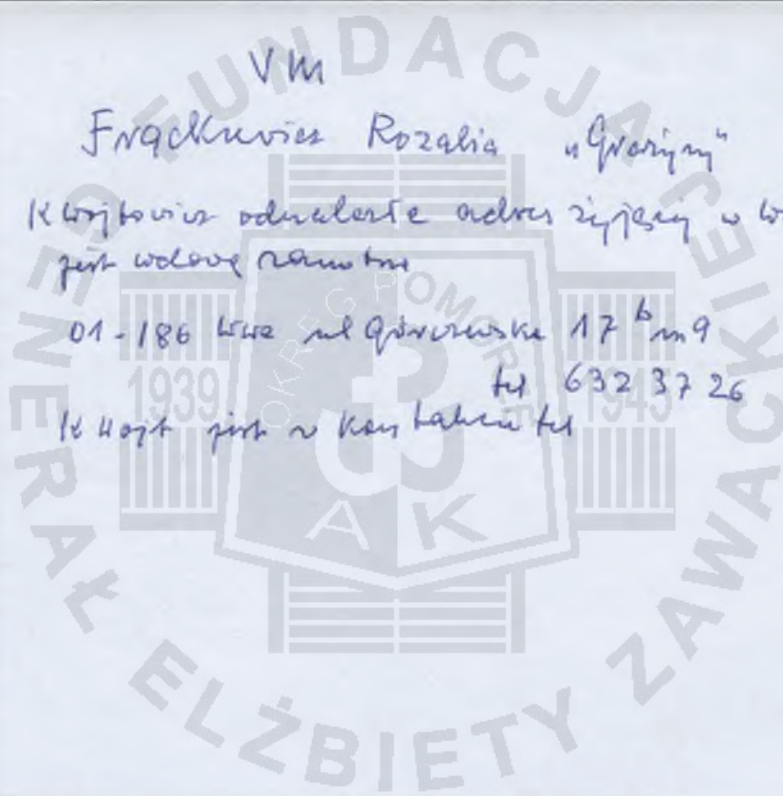 VM
Frąckiewicz Rozalia „Grażyny"
K Wojtowicz odnalazła adres żyjącej w
jest wdową samotną
01-186 Wwa ul Górczewska 17 b m 9
tel 632 37 26
K Wojt jest w kontakcie tel
FUNDACJA
GENERAŁ ELŻBIETY ZAWACKIEJ
OKRĘG POMORZE
1939
1945
AK